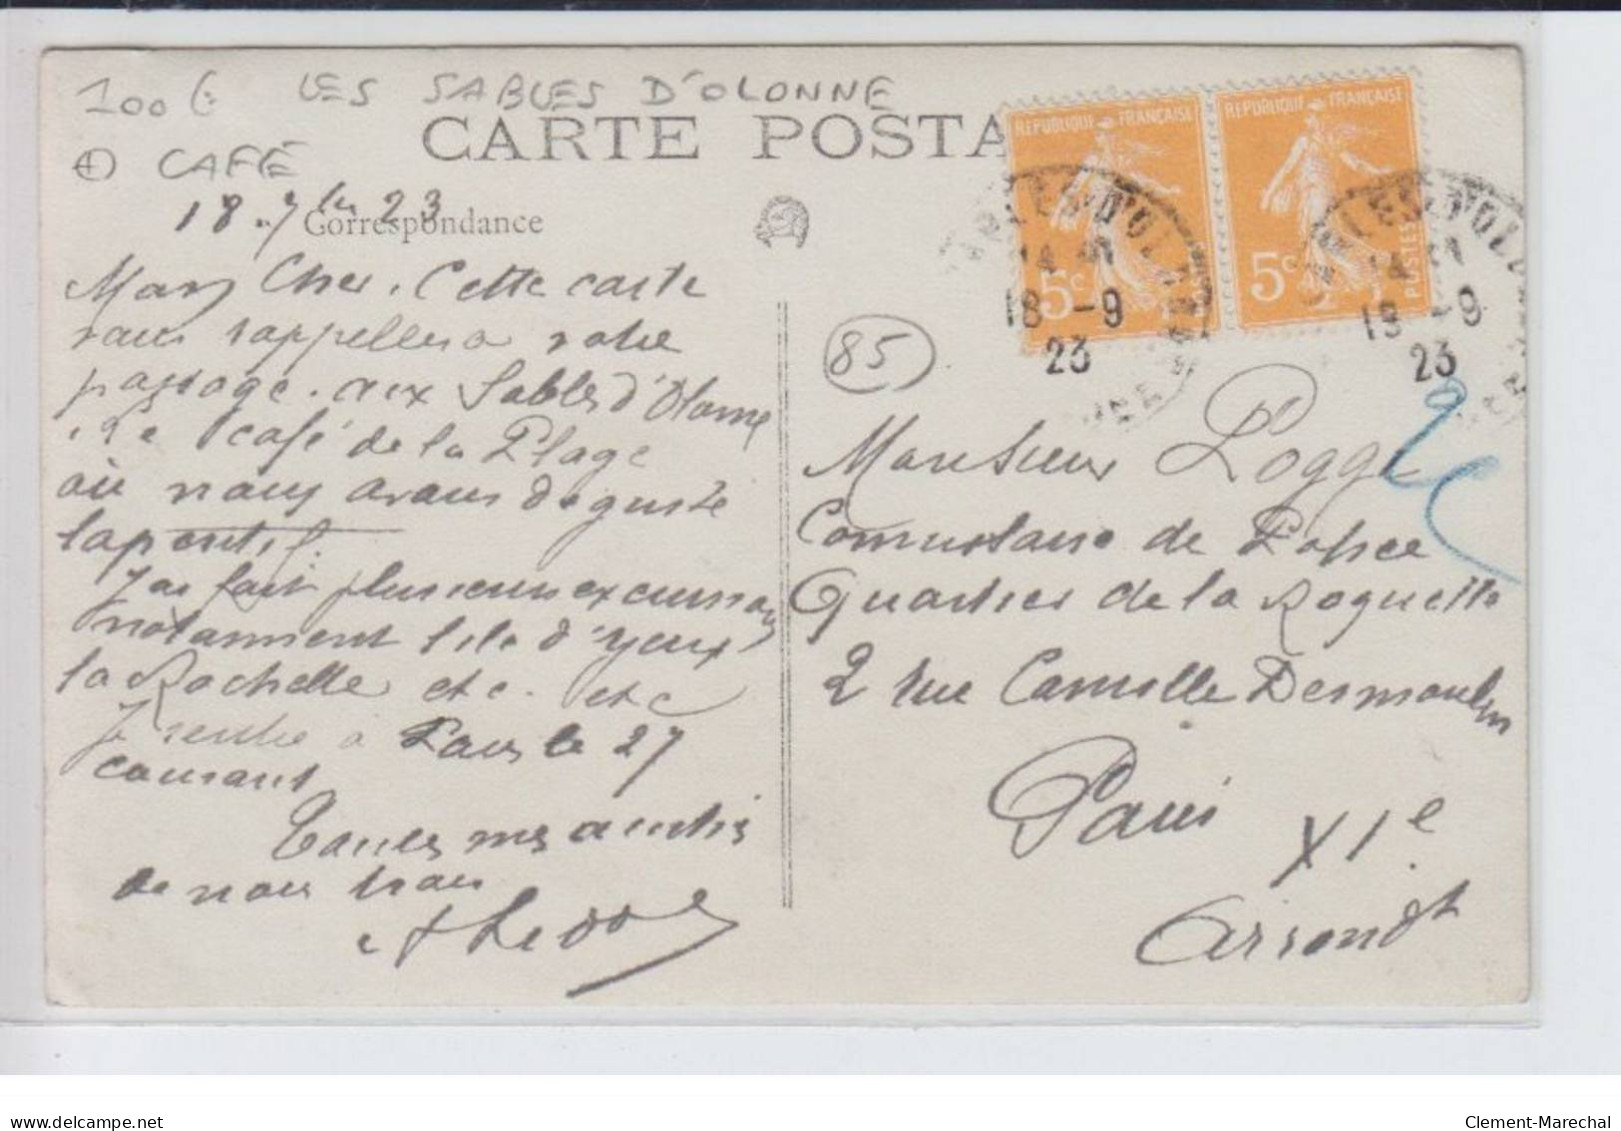 100 € LES SABLES D'OLONNE
CARTE POSTA
CAFÉ
18.. 7bre 23
Correspondance
Mon Cher. Cette carte
vous rappellera votre
passage aux Sables d'Olonne
Le café de la Plage
où nous avons dégusté
l'aperitif.
J'ai fait plusieurs excursions
notamment l'ile d'yeux
la Rochelle etc. etc
Je rentre a Paris le 27
courant
Toutes mes amitiés
de nous trois
REPUBLIQUE FRANÇAISE
5c
REPUBLIQUE FRANÇAISE
5c
POSTES
SABLES-D'OLONNE
18 -9
23
SABLES-D'OLONNE
18 -9
23
85
Monsieur Poggi
Commissaire de Police
Quartier de la Roquette
2 rue Camille Desmoulins
Paris
XIe
Arrondt
delcampe.net
Clement-Marechal